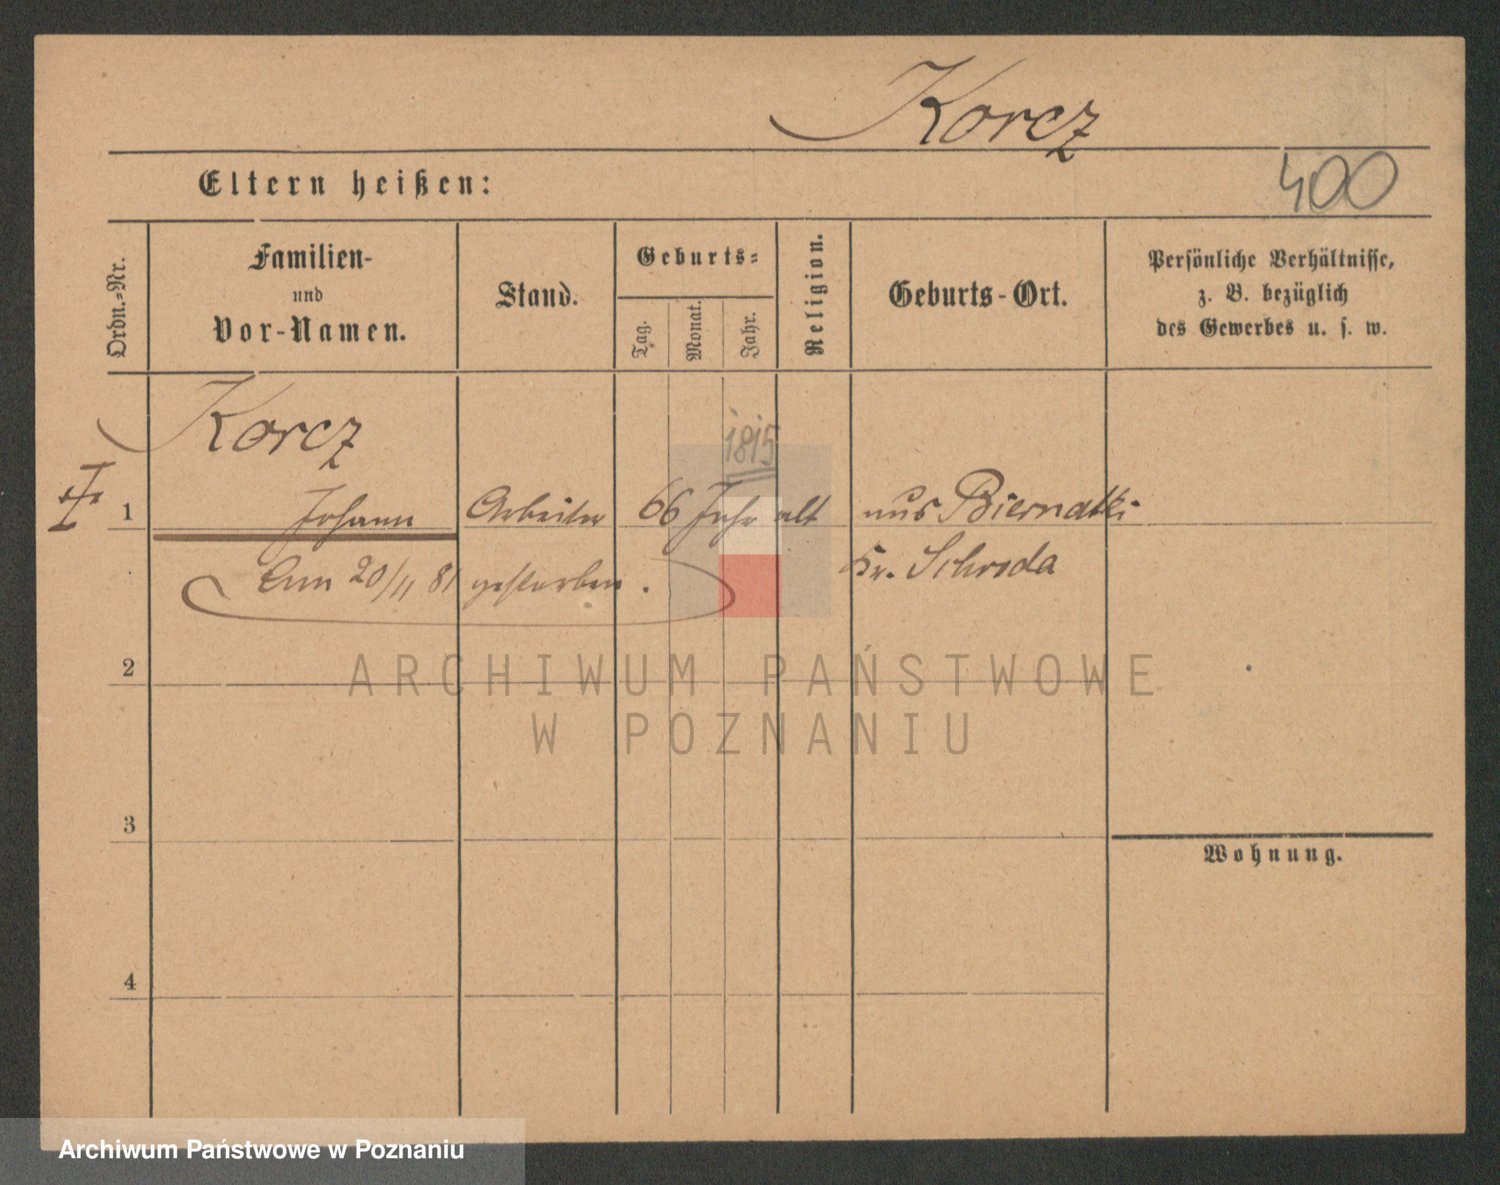 Korcz
Eltern heißen:
400
Ordn.-Nr.
Familien-
und
Vor-Namen.
Stand.
Geburts-
Tag.
Monat.
Jahr.
Religion.
Geburts-Ort.
Persönliche Verhältnisse,
z. B. bezüglich
des Gewerbes u. s. w.
Korcz
1815
1 Johann Arbeiter 66 Jahr alt aus Biernatki
Kr. Schroda
Am 20/11 81 gestorben.
2
ARCHIWUM PAŃSTWOWE
W POZNANIU
3
Wohnung.
4
Archiwum Państwowe w Poznaniu